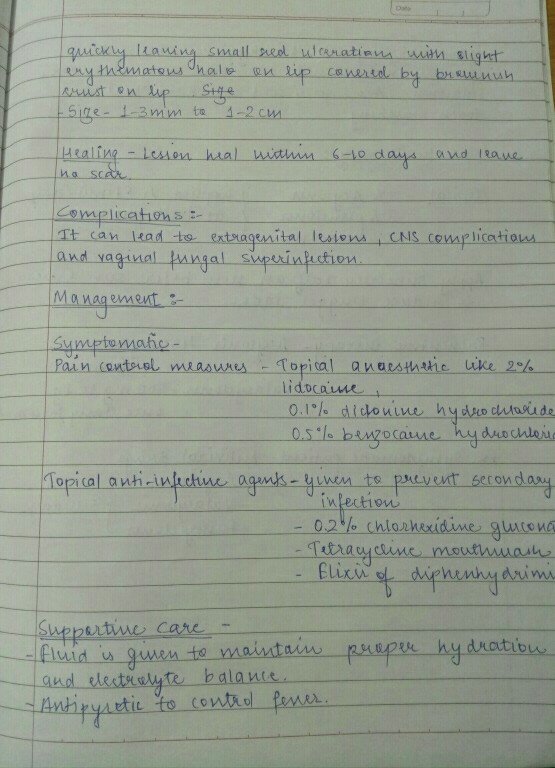 Date
quickly leaving small red ulcerations with slight
erythematous halo on lip covered by brownish
crust on lip. Size
- Size - 1-3mm to 1-2cm
Healing - Lesion heal within 6-10 days and leave
no scar.
Complications :-
It can lead to extragenital lesions, CNS complications
and vaginal fungal superinfection.
Management :-
Symptomatic -
Pain control measures - Topical anaesthetic like 2%
lidocaine,
0.1% diclonine hydrochloride
0.5% benzocaine hydrochloric
Topical anti-infective agents - given to prevent secondary
infection
- 0.2% chlorhexidine glucona
- Tetracycline mouthwash
- Elixir of diphenhydrimi
Supportive care -
- Fluid is given to maintain proper hydration
and electrolyte balance.
- Antipyretic to control fever.